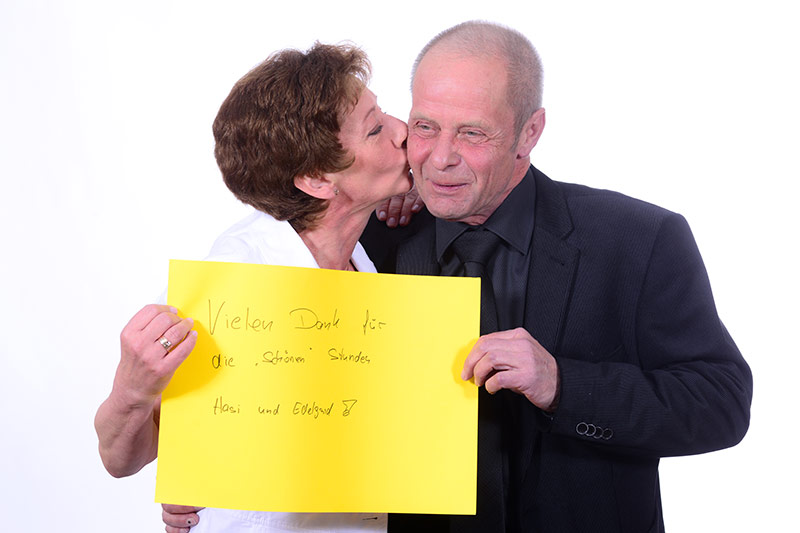 Vielen Dank für
die „Schönen" Stunden
Hasi und Edelgard !